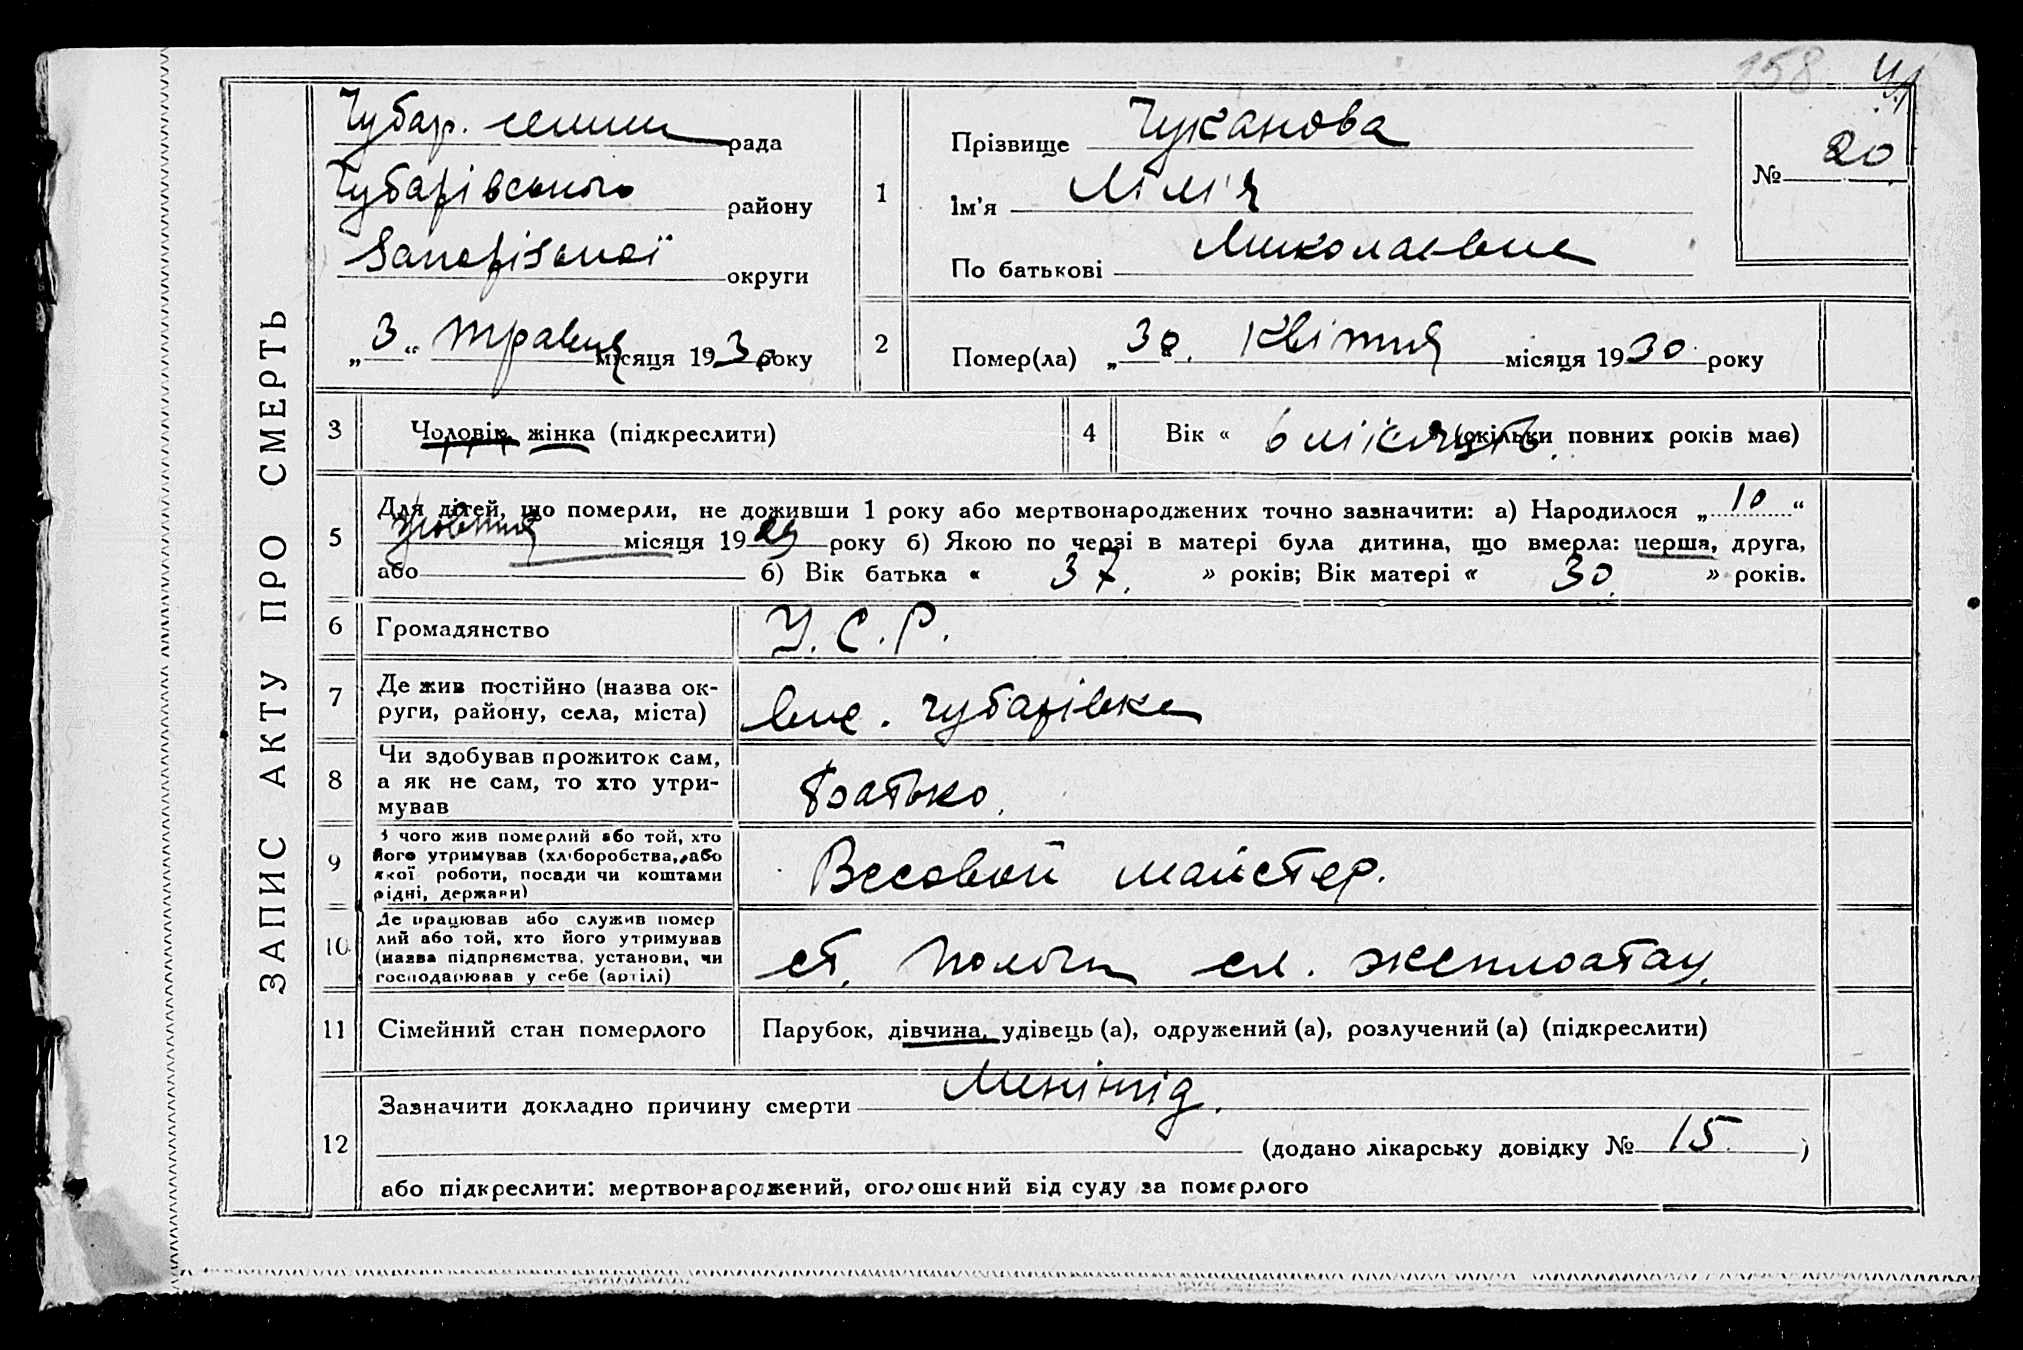 158 Ч
ЗАПИС АКТУ ПРО СМЕРТЬ
Чубар. селищ рада
Чубарівського району
Запорізької округи
„3“ травня місяця 1930 року
1
Прізвище Чуканова
Ім'я Лілія
По батькові Миколаєвна
№ 20
2
Помер(ла) „30“ Квітня місяця 1930 року
3 Чоловік, жінка (підкреслити)
4 Вік « 6 місяців » (скільки повних років має)
5
Для дітей, що померли, не доживши 1 року або мертвонароджених точно зазначити: а) Народилося „10“
жовтня місяця 1929 року б) Якою по черзі в матері була дитина, що вмерла: перша, друга,
або б) Вік батька « 37. » років; Вік матері « 30. » років.
6 Громадянство У.С.Р.
7
Де жив постійно (назва ок-
руги, району, села, міста)
Чубарівка
8
Чи здобував прожиток сам,
а як не сам, то хто утри-
мував
батько.
9
З чого жив померлий або той, хто
його утримував (хліборобства, або
якої роботи, посади чи коштами
рідні, держави)
Весовой майстер.
10
Де працював або служив помер
лий або той, хто його утримував
(назва підприємства, установи, чи
господарював у себе (артілі)
ст. Пологи сл. эксплоатац.
11 Сімейний стан померлого Парубок, дівчина, удівець (а), одружений (а), розлучений (а) (підкреслити)
12
Зазначити докладно причину смерти Менінгід.
(додано лікарську довідку № 15. )
або підкреслити: мертвонароджений, оголошений від суду за померлого